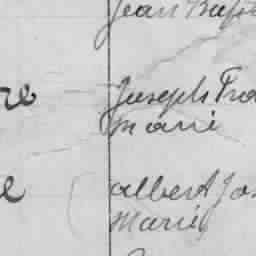 Jean Bap
re Joseph Fra
Marie
e Albert Jos
Marie